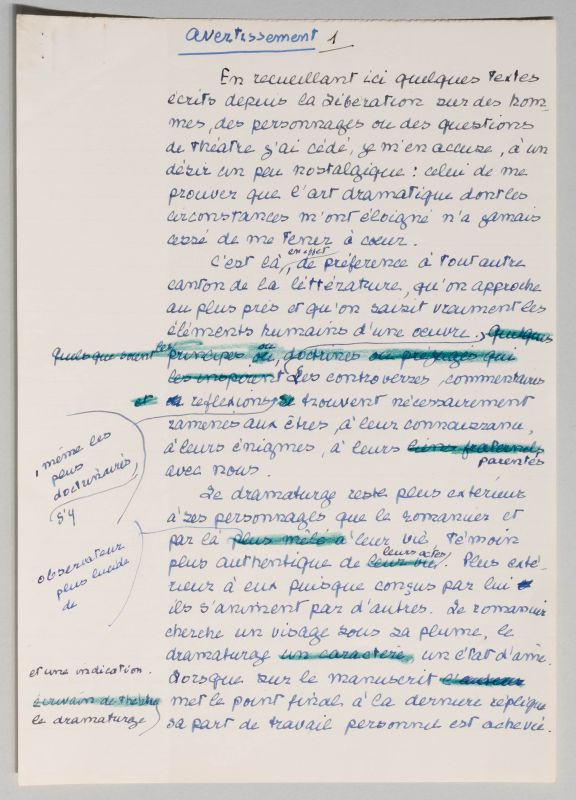 avertissement 1
En recueillant ici quelques textes
écrits depuis la Libération sur des hom-
mes, des personnages ou des questions
de théâtre j'ai cédé, je m'en accuse, à un
désir un peu nostalgique : celui de me
prouver que l'art dramatique dont les
circonstances m'ont éloigné n'a jamais
cessé de me tenir à coeur.
en effet
C'est là, de préférence à tout autre
canton de la littérature, qu'on approche
au plus près et qu'on saisit vraiment les
éléments humains d'une oeuvre. Quelques
quels que soient les principes ou doctrines ou préjugés qui
les inspirent Les controverses, commentaires
et reflexions se trouvent nécessairement
ramenés aux êtres, à leur connaissance,
à leurs énigmes, à leurs liens fraternels
parentés
avec nous.
, même les
plus
doctrinaires,
s'y
Le dramaturge reste plus extérieur
à ses personnages que le romancier et
par là plus mêlé à leur vie, témoin
leurs actes
plus authentique de leur vie. Plus exté-
rieur à eux puisque conçus par lui
ils s'animent par d'autres. Le romancier
cherche un visage sous sa plume, le
dramaturge un caractère, un état d'âme.
observateur
plus lucide
de
et une indication.
Lorsque sur le manuscrit l'auteur
écrivain de théâtre
le dramaturge
met le point final à la dernière réplique
sa part de travail personnel est achevée.